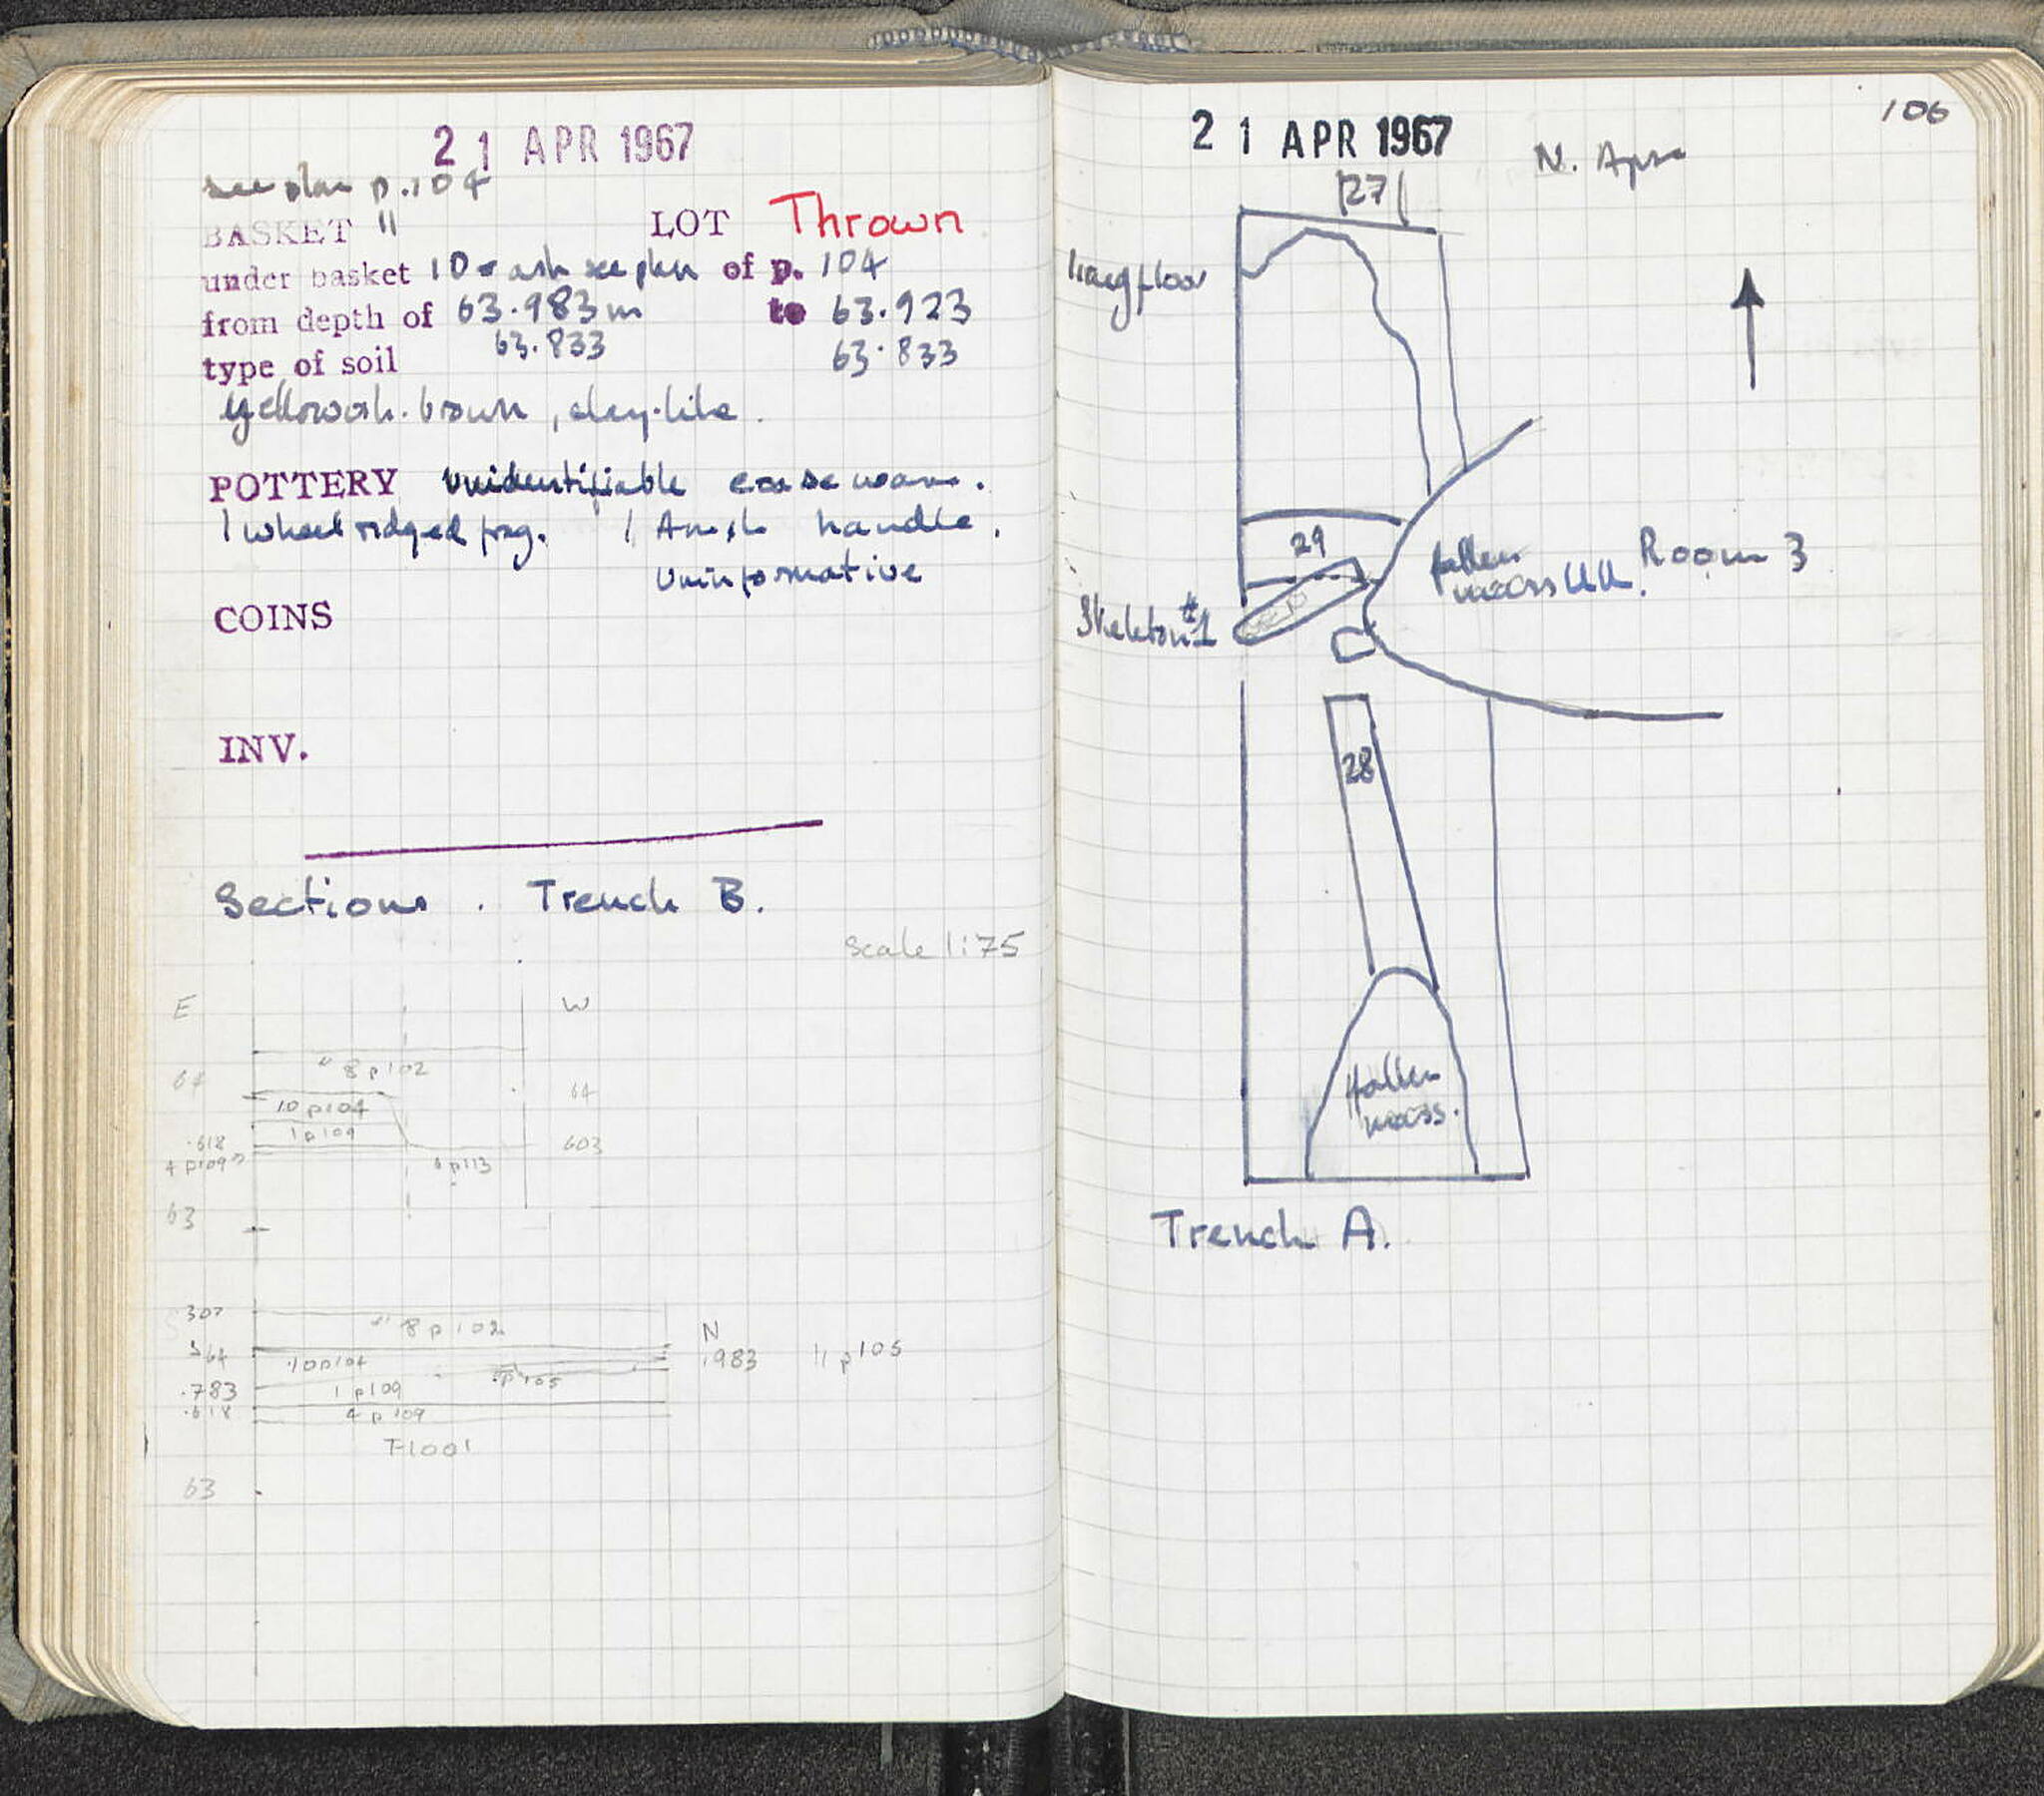 21 APR 1967
see plan p. 104
BASKET 11 LOT Thrown
under basket 10 ash see plan of p. 104
from depth of 63.983 m to 63.923
63.833 63.833
type of soil
yellowish-brown, clay-like.
POTTERY Unidentifiable coarse ware.
1 wheel ridged frag. 1 handle.
Uninformative
COINS
INV.
Sections. Trench B.
scale 1:75
E W
" 8 p 102
64 64
10 p 104
1 p 109
.618 603
4 p 109
6 p 113
63
307
" 8 p 102
N
64 .983 11 p 105
10 p 104
p 105
.783 1 p 109
.618 4 p 109
Floor
63
106
21 APR 1967 N. Apse
27
floor
29
fallen mass Room 3
Skeleton #1
28
fallen
mass.
Trench A.